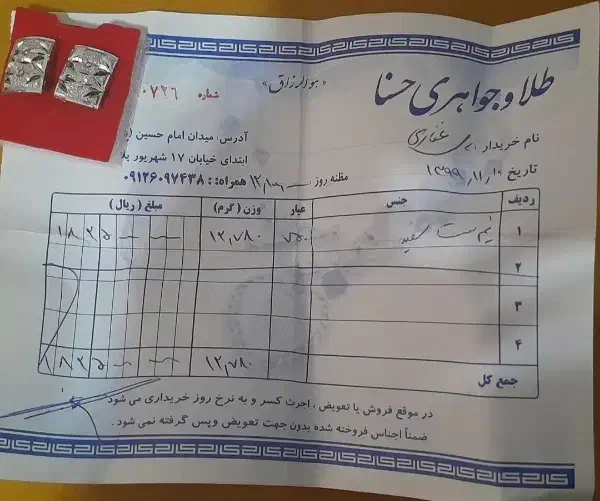 «هوالرزاق»
طلا و جواهری حسنا
شماره ۰۷۲۶
نام خریدار: غفاری
آدرس: میدان امام حسین
تاریخ ۱۳۹۹/۱۱/۱۰
ابتدای خیابان ۱۷ شهریور
مظنه روز همراه: ۰۹۱۲۶۰۹۷۴۳۸
ردیف جنس عیار وزن (گرم) مبلغ (ریال)
۱ نیم ست سفید ۷۵۰ ۱۲,۷۸۰ ۱۸۳۵
۲
۳
۴
جمع کل ۱۲,۷۸۰ ۱۸۳۵
در موقع فروش یا تعویض، اجرت کسر و به نرخ روز خریداری می شود
ضمناً اجناس فروخته شده بدون جهت تعویض و پس گرفته نمی شود.